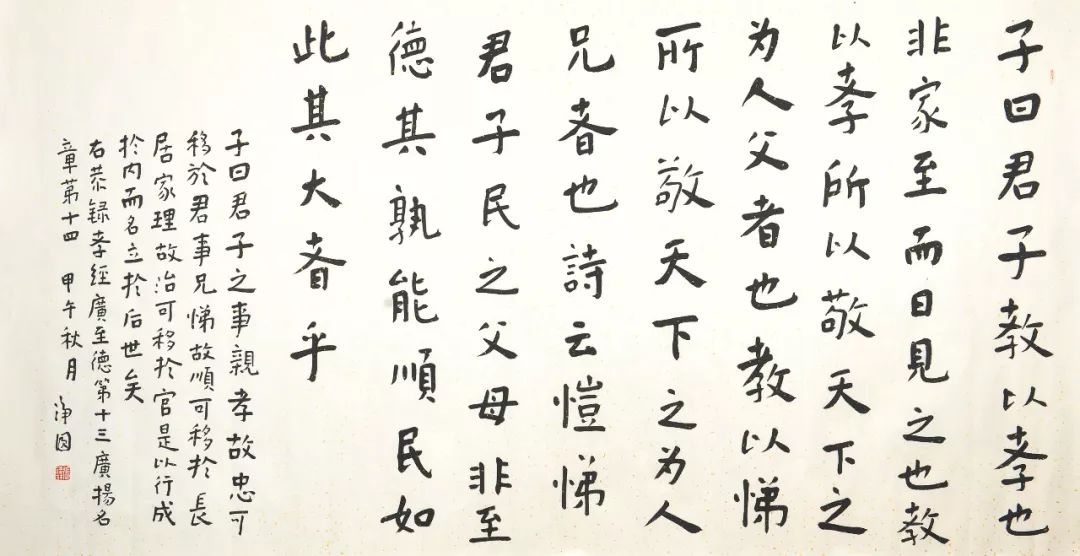 子曰君子教以孝也
非家至而日見之也教
以孝所以敬天下之
为人父者也教以悌
所以敬天下之为人
兄者也詩云愷悌
君子民之父母非至
德其孰能順民如
此其大者乎
子曰君子之事親孝故忠可
移於君事兄悌故順可移於長
居家理故治可移於官是以行成
於内而名立於后世矣
右恭録孝經廣至德第十三廣揚名
章第十四 甲午秋月 淨因